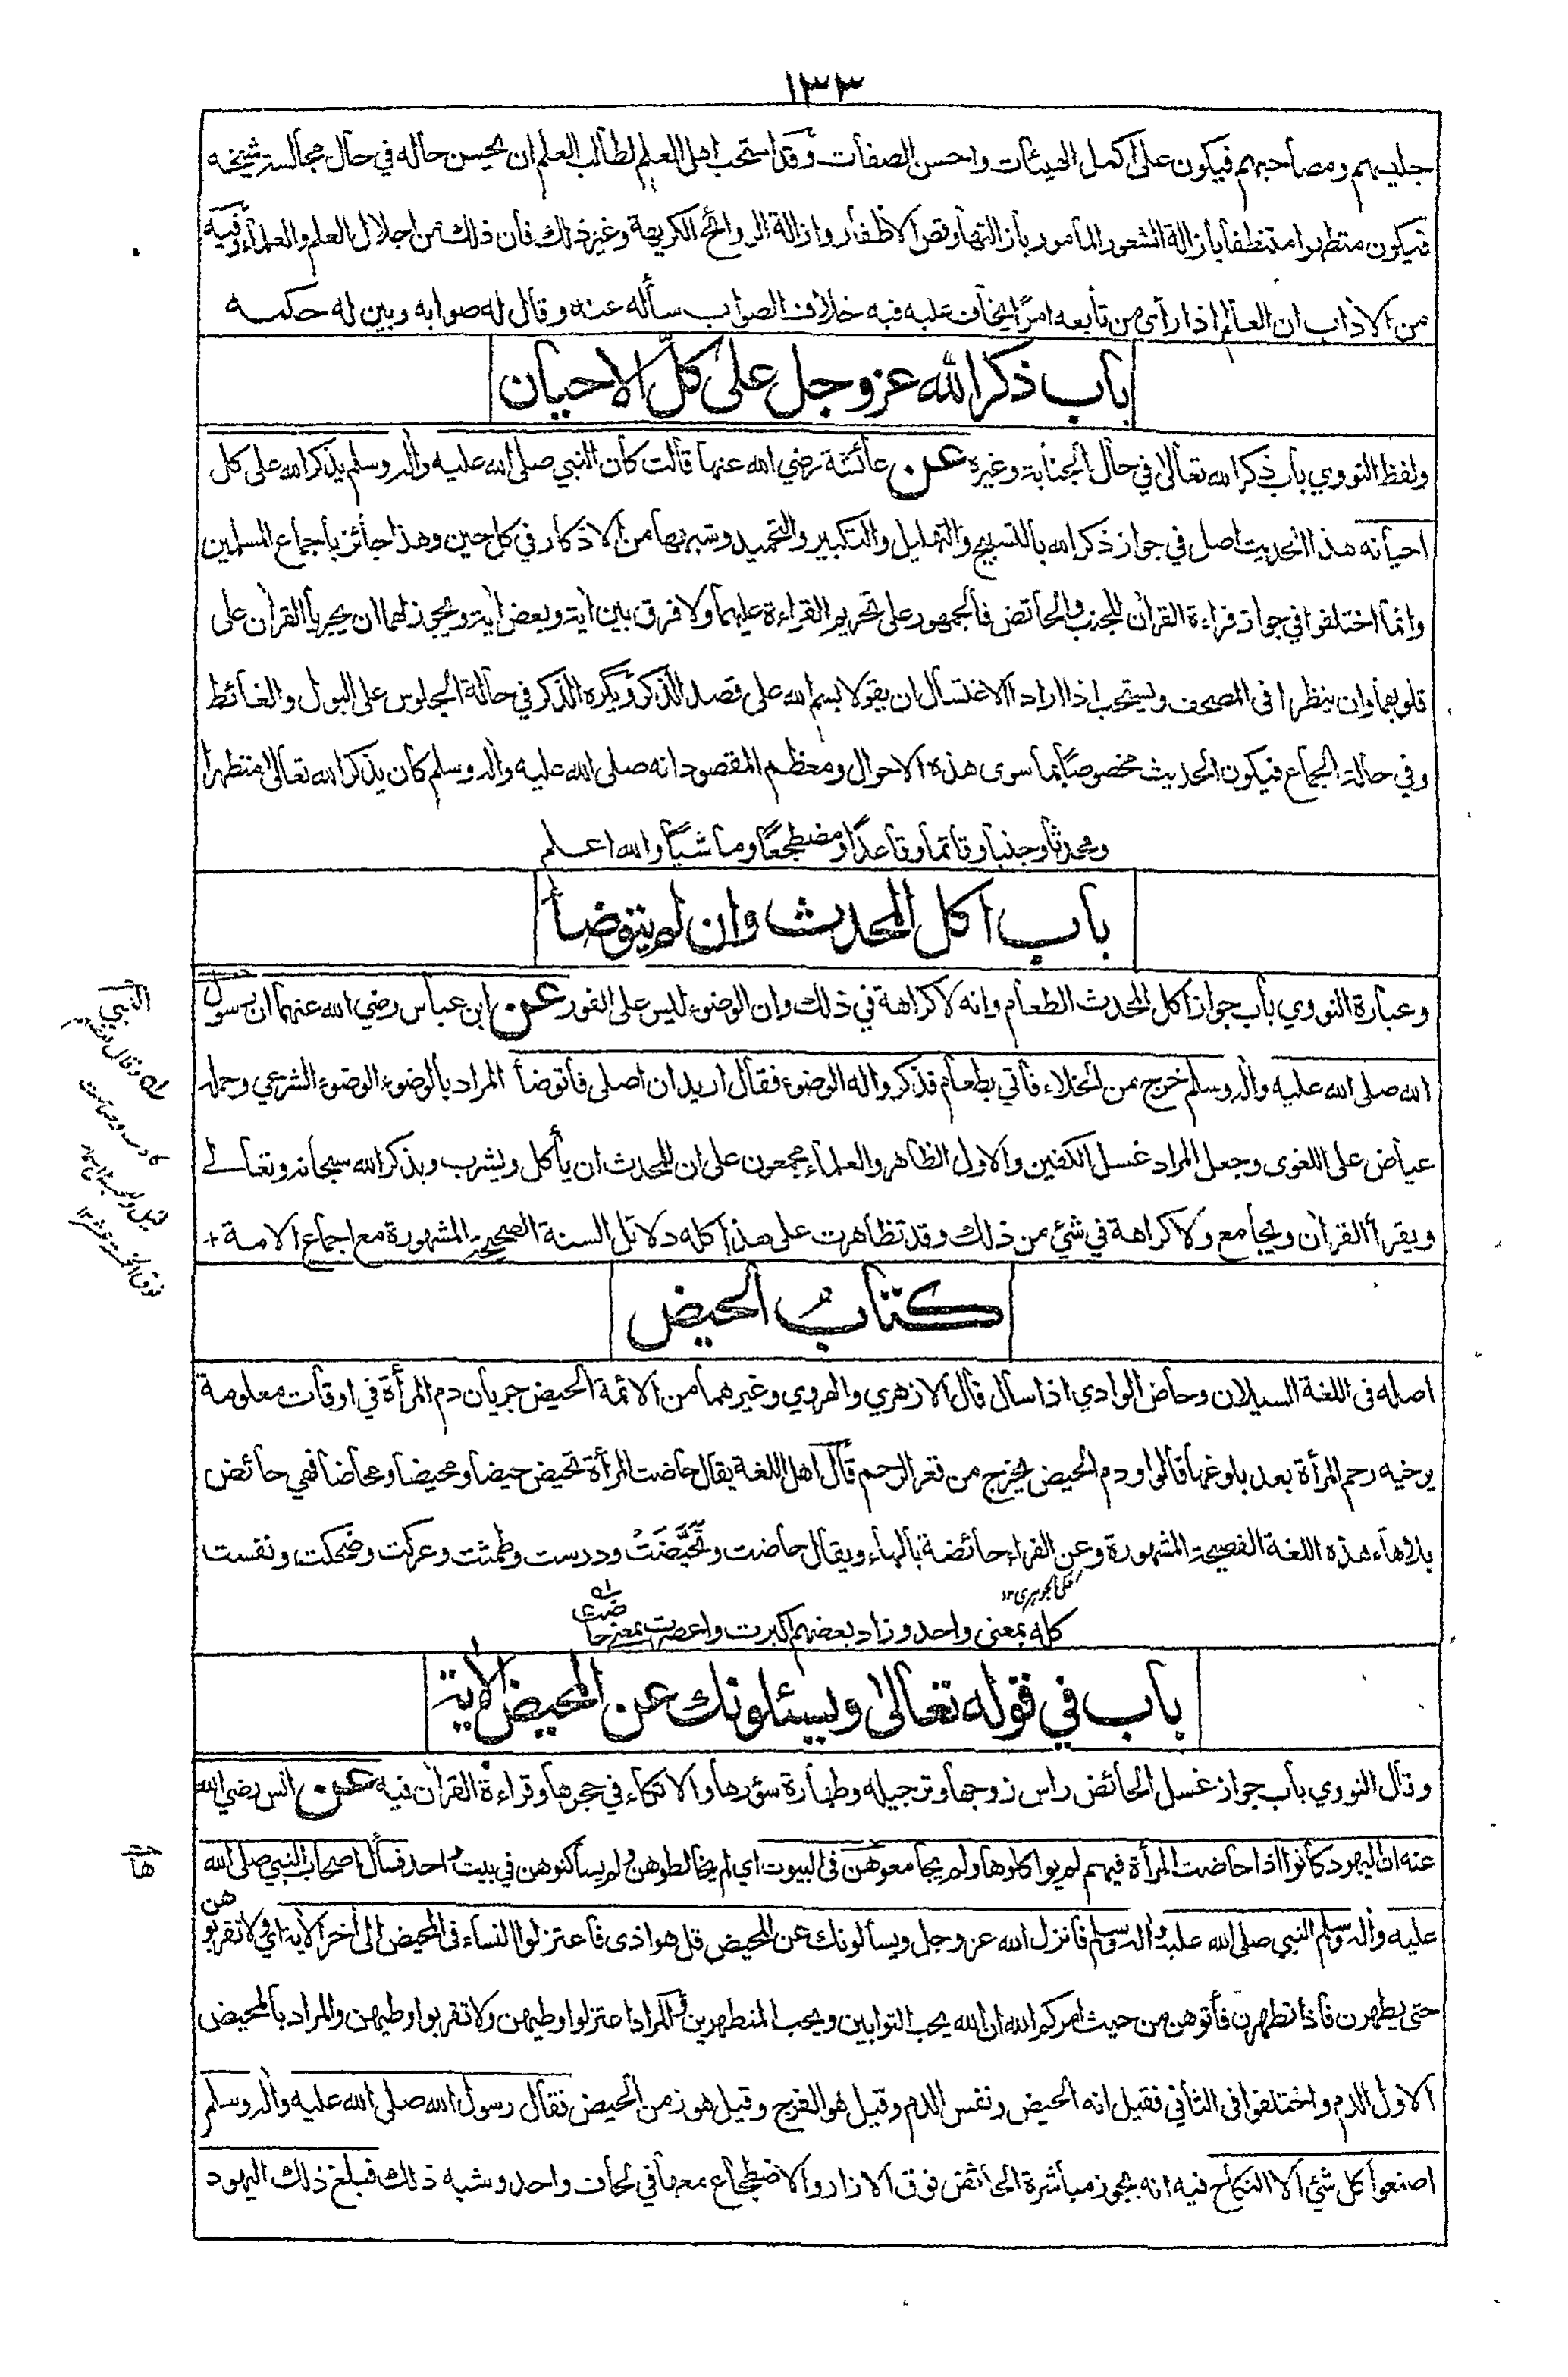 ١٣٣
جليسهم ومصاحبهم فيكون على أكمل الهيئات واحسن الصفات وقد استحب اهل العلم لطالب العلم ان يحسن حاله في حال مجالسة شيخه
فيكون متطهرا متنظفا بازالة الشعور المأمور بازالتها وقص الاظفار وازالة الروائح الكريهة وغير ذلك فان ذلك من اجلال العلم والعلماء وفيه
من الاداب ان العالم اذا رأى من تابعه امرًا يخاف عليه فيه خلاف الصواب سأله عنه وقال له صوابه وبين له حكمه
باب ذكر الله عز وجل على كلّ الاحيان
ولفظ النووي باب ذكر الله تعالى في حال الجنابة وغيره عن عائشة رضي الله عنها قالت كان النبي صلى الله عليه واله وسلم يذكر الله على كل
احيانه هذا الحديث اصل في جواز ذكر الله بالتسبيح والتهليل والتكبير والتحميد وشبهها من الاذكار في كل حين وهذا جائز باجماع المسلمين
وانما اختلفوا في جواز قراءة القران للجنب والحائض فالجمهور على تحريم القراءة عليهما ولا فرق بين اية وبعض اية ويجوز لهما ان يجريا القران على
قلوبهما وان ينظرا في المصحف ويستحب اذا ارادا الاغتسال ان يقولا بسم الله على قصد الذكر ويكره الذكر في حالة الجلوس على البول والغائط
وفي حالة الجماع فيكون الحديث مخصوصًا بما سوى هذه الاحوال ومعظم المقصود انه صلى الله عليه واله وسلم كان يذكر الله تعالى متطهرا
ومحدثا وجنبا وقائما وقاعدًا ومضطجعًا وماشيًا والله اعلم
باب اكل المحدث وان لم يتوضأ
وعبارة النووي باب جواز اكل المحدث الطعام وانه لا كراهة في ذلك وان الوضوء ليس على الفور عن ابن عباس رضي الله عنهما ان رسول
الله صلى الله عليه واله وسلم خرج من الخلاء فأتي بطعام فذكروا له الوضوء فقال اريد ان اصلى فاتوضأ المراد بالوضوء الوضوء الشرعي وحمله
عياض على اللغوى وجعل المراد غسل الكفين والاول الظاهر والعلماء مجمعون على ان للمحدث ان يأكل ويشرب ويذكر الله سبحانه وتعالى
ويقرأ القران ويجامع ولا كراهة في شئ من ذلك وقد تظاهرت على هذا كله دلائل السنة الصحيحة المشهورة مع اجماع الامة +
النبي
كتابُ الحيض
اصله فى اللغة السيلان وحاض الوادي اذا سال قال الازهري والهروي وغيرهما من الائمة الحيض جريان دم المرأة في اوقات معلومة
يرخيه رحم المرأة بعد بلوغها قالوا ودم الحيض يخرج من قعر الرحم قال اهل اللغة يقال حاضت المرأة تحيض حيضا ومحيضا ومحاضا فهي حائض
بلا هاء هذه اللغة الفصيحة المشهورة وعن الفراء حائضة بالهاء ويقال حاضت وتَحَيَّضَتْ ودرست وطمثت وعركت وضحكت ونفست
كله بمعنى واحد وزاد بعضهم اكبرت واعصرت بمعنى حاضت
باب في قوله تعالى ويسئلونك عن المحيض الأية
وقال النووي باب جواز غسل الحائض راس زوجها وترجيله وطهارة سؤرها والاتكاء في حجرها وقراءة القران فيه عن انس رضي الله
عنه ان اليهود كانوا اذا حاضت المرأة فيهم لم يواكلوها ولم يجامعوهن فى البيوت اي لم يخالطوهن ولم يساكنوهن في بيت واحد فسأل اصحاب النبي صلى الله
ها
عليه واله وسلم النبي صلى الله عليه واله وسلم فأنزل الله عز وجل ويسألونك عن المحيض قل هو اذى فاعتزلوا النساء فى المحيض الى أخر الأية اي ولا تقربوهن
حتى يطهرن فأذا تطهرن فأتوهن من حيث امركم الله ان الله يحب التوابين ويحب المتطهرين والمراد اعتزلوا وطيهن ولا تقربوا وطيهن والمراد بالمحيض
الاول الدم واختلفوا فى الثاني فقيل انه الحيض ونفس الدم وقيل هو الفرج وقيل هو زمن الحيض فقال رسول الله صلى الله عليه واله وسلم
اصنعوا كل شئ الا النكاح فيه انه يجوز مباشرة الحائض فوق الازار والاضطجاع معها في لحاف واحد وشبه ذلك فبلغ ذلك اليهود